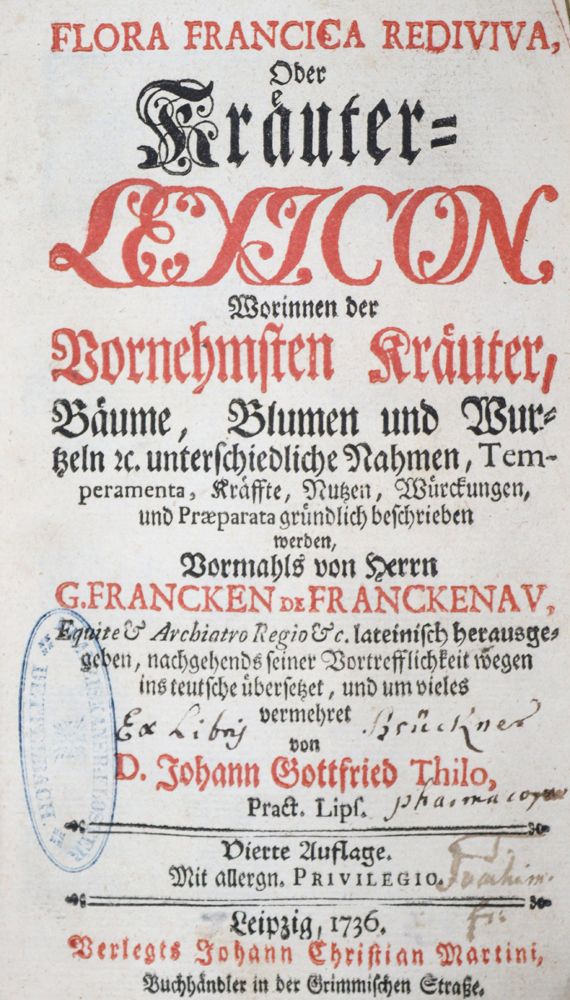 FLORA FRANCICA REDIVIVA,
Oder
Kräuter-
LEXICON,
Worinnen der
Vornehmsten Kräuter,
Bäume, Blumen und Wur-
tzeln ꝛc. unterschiedliche Nahmen, Tem-
peramenta, Kräffte, Nutzen, Würckungen,
und Præparata gründlich beschrieben
werden,
Vormahls von Herrn
G. FRANCKEN DE FRANCKENAV,
Equite & Archiatro Regio &c. lateinisch herausge-
geben, nachgehends seiner Vortrefflichkeit wegen
ins teutsche übersetzet, und um vieles
vermehret
Ex Libris Brückner
von
D. Johann Gottfried Thilo,
Pract. Lips.
Vierte Auflage.
Mit allergn. PRIVILEGIO.
Joachim.
Leipzig, 1736.
Verlegts Johann Christian Martini,
Buchhändler in der Grimmischen Straße.